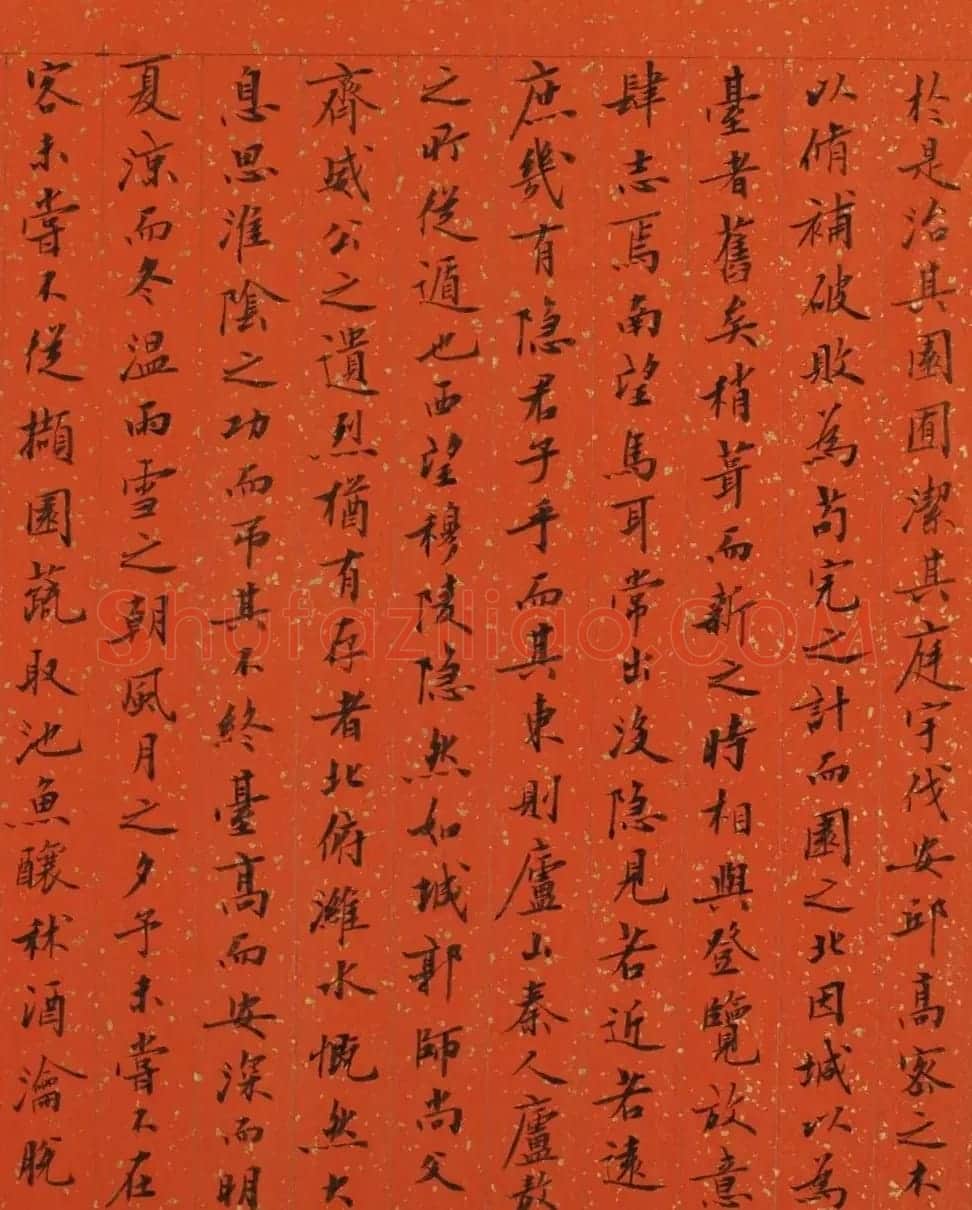 於是治其園圃潔其庭宇伐安邱高密之木
以脩補破敗為苟完之計而園之北因城以為
臺者舊矣稍葺而新之時相與登覽放意
肆志焉南望馬耳常出沒隱見若近若遠
庶幾有隱君子乎而其東則廬山秦人廬敖
之所從遁也西望穆陵隱然如城郭師尚父
齊威公之遺烈猶有存者北俯濰水慨然大
息思淮陰之功而弔其不終臺高而安深而明
夏涼而冬溫雨雪之朝風月之夕予未嘗不在
客未嘗不從擷園蔬取池魚釀秫酒瀹脫
Shufaziliao.COM